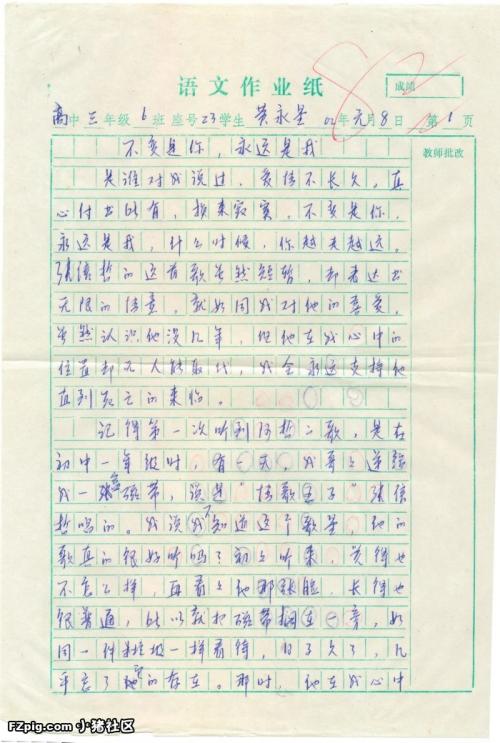 82
语文作业纸
成绩
高中三年级6班座号23学生 黄永星 02年元月8日 第1页
教师批改
不变是你，永远是我
是谁对我说过，爱情不长久，真
心付出所有，换来寂寞，不变是你，
永远是我，什么时候，你越走越远。
张信哲的这首歌虽然短暂，却表达出
无限的情意，就如同我对他的喜爱，
虽然认识他没几年，但他在我心中的
位置却无人能取代，我会永远支持他
直到死亡的来临。
记得第一次听到阿哲的歌，是在
初中一年级时，有一天，我哥哥递给
我一张磁带，说是“情歌王子”张信
哲唱的。我说我不知道这个歌星，他的
歌真的很好听吗？初初听来，觉得也
不怎么样，再看看他那张脸，长得也
很普通，所以就把磁带搁在一旁，如
同一件垃圾一样看待，时间久了，几
乎忘了它的存在。那时，他在我心中
FZpig.com 小猪社区